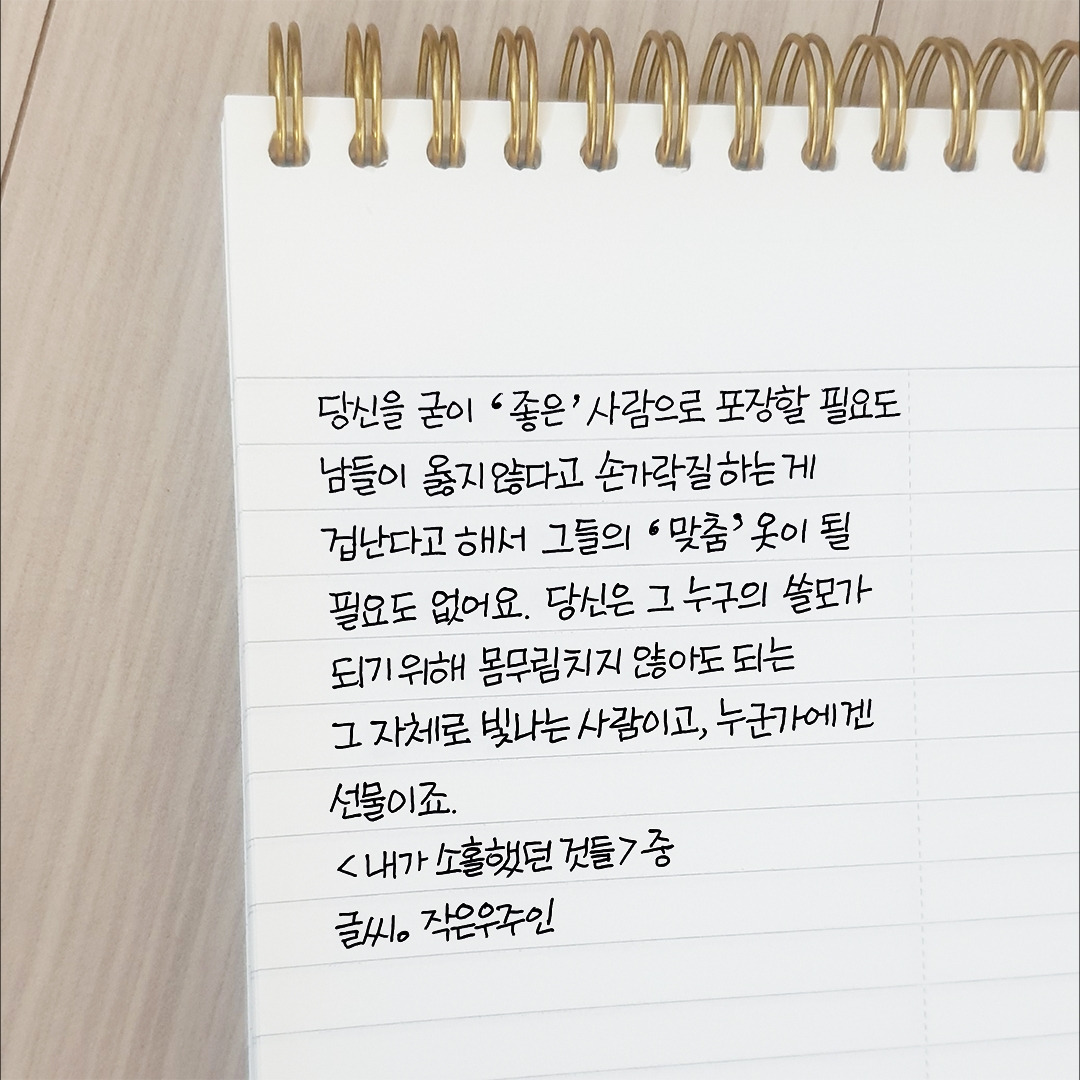 당신을 굳이 ‘좋은’ 사람으로 포장할 필요도
남들이 옳지않다고 손가락질하는 게
겁난다고 해서 그들의 ‘맞춤’ 옷이 될
필요도 없어요. 당신은 그 누구의 쓸모가
되기 위해 몸무림치지 않아도 되는
그 자체로 빛나는 사람이고, 누군가에겐
선물이죠.
<내가 소홀했던 것들> 중
글씨。 작은우주인